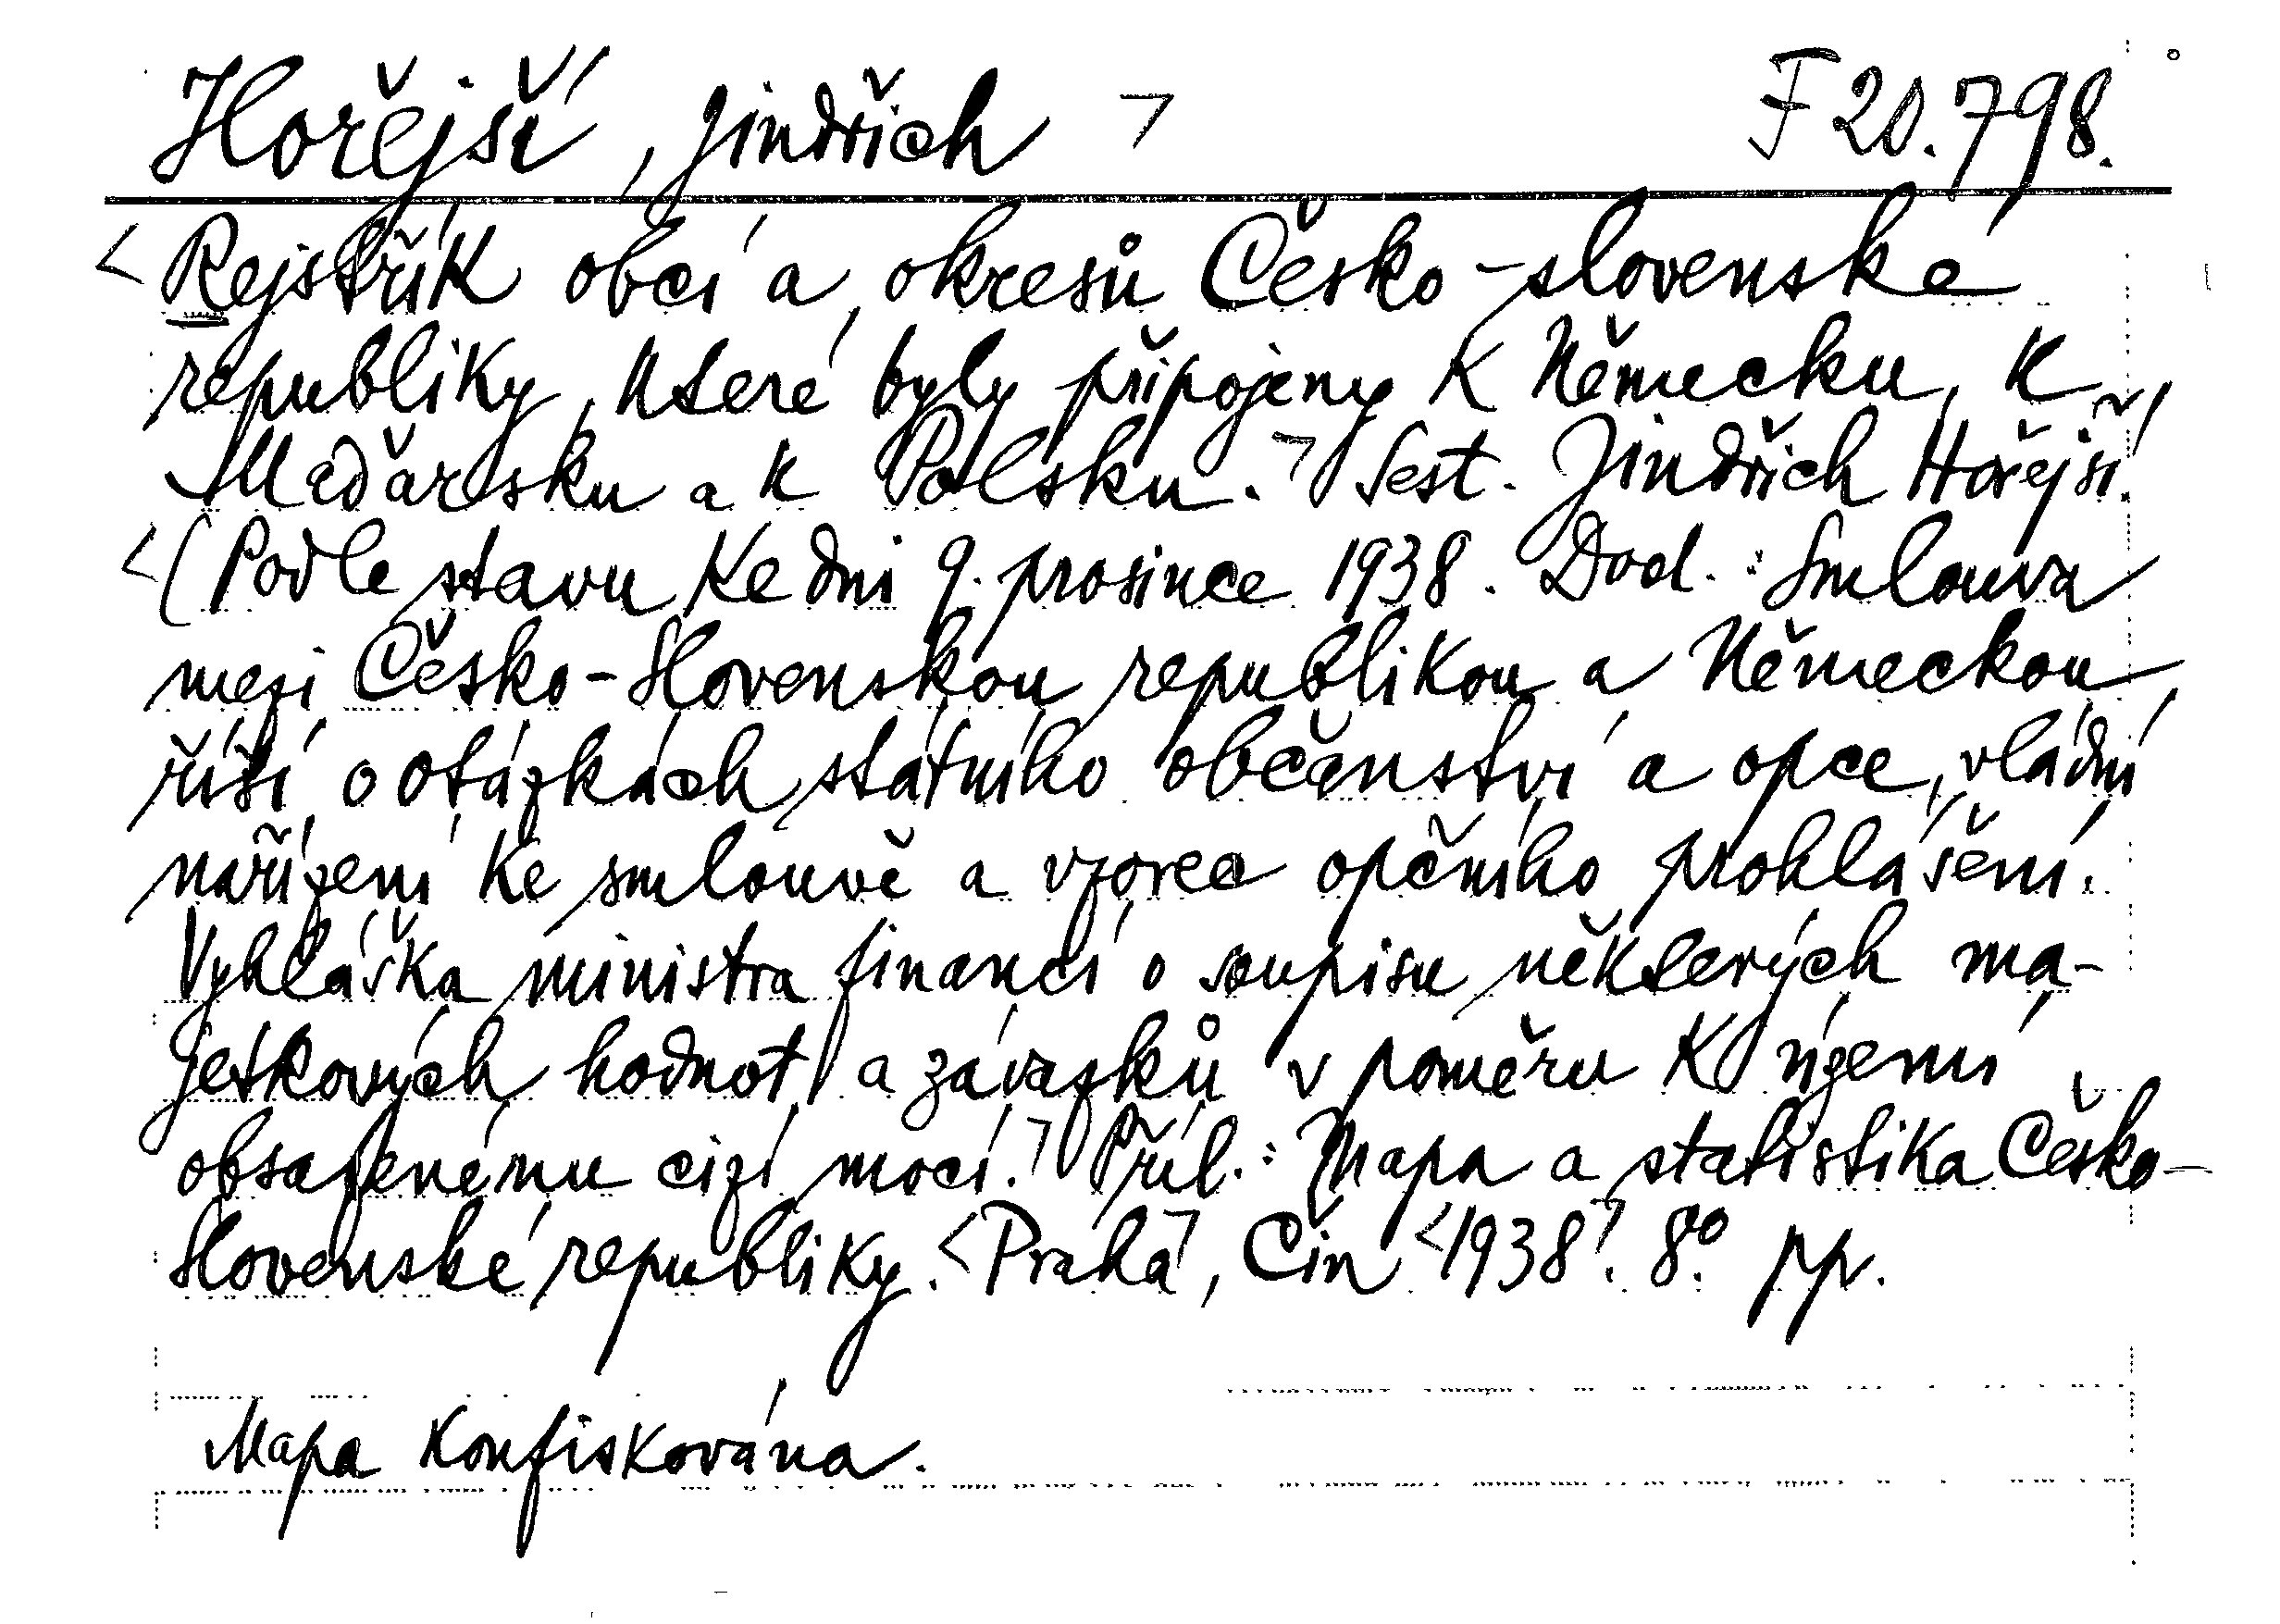 Hořejší, Jindřich ¬ F 20.798.
<Rejstřík obcí a okresů Česko-slovenské
republiky, které byly připojeny k Německu, k
Maďarsku a k Polsku.¬ Sest. Jindřich Hořejší.
<(Podle stavu ke dni 9. prosince 1938. Dod.: Smlouva
mezi Česko-Slovenskou republikou a Německou
říší o otázkách státního občanství a opce, vládní
nařízení ke smlouvě a vzorec opčního prohlášení.
Vyhláška ministra financí o soupisu některých ma-
jetkových hodnot a závazků v poměru k území
obsazenému cizí mocí.¬ Příl.: Mapa a statistika Česko-
Slovenské republiky. <Praha¬, Čin <1938¬. 8°. pp.
Mapa konfiskována.